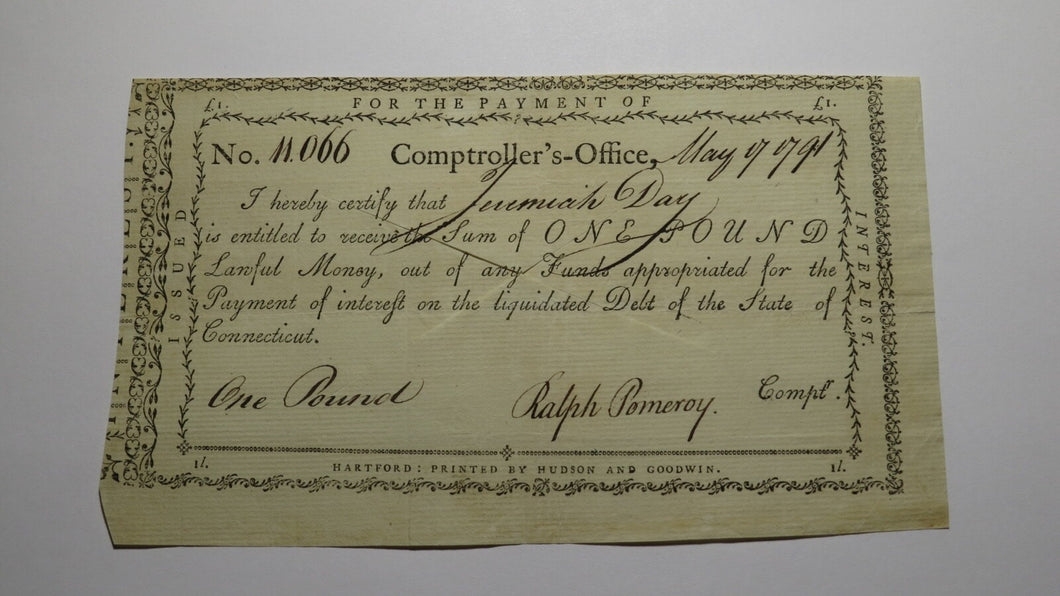 £1. FOR THE PAYMENT OF £1.
No. 11.066 Comptroller's-Office, May 17 1791
I hereby certify that Jeremiah Day
is entitled to receive the Sum of ONE POUND
Lawful Money, out of any Funds appropriated for the
Payment of intereſt on the liquidated Debt of the State of
Connecticut.
One Pound Ralph Pomeroy. Comptr.
1l. 1l.
HARTFORD: PRINTED BY HUDSON AND GOODWIN.
ISSUED
INTEREST.